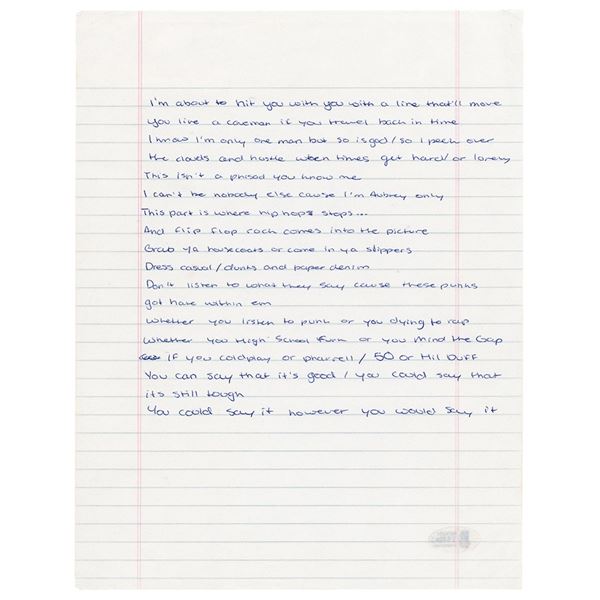 I'm about to hit you with you with a line that'll move
you like a caveman if you travel back in time
I know I'm only one man but so is god / so I peek over
the clouds and hustle when times get hard / or lonely
This isn't a phised you know me
I can't be nobody else cause I'm Aubrey only
This part is where hip hops stops...
And flip flop rock comes into the picture
Grab ya housecoats or come in ya slippers
Dress casual / dunks and paper denim
Don't listen to what they say cause these punks
got hate within em
Whether you listen to punk or you dying to rap
Whether you High School Funk or you Mind the Gap
IF you coldplay or pharrell / 50 or Hil Duff
You can say that it's good / you could say that
its still tough
You could say it however you would say it